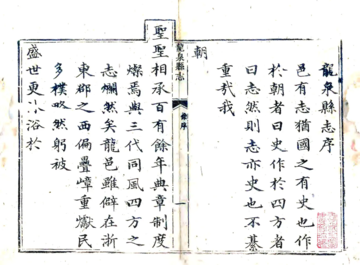 龍泉縣志序
邑有志猶國之有史也作
於朝者曰史作於四方者
曰志然則志亦史也不綦
重哉我
朝
龍泉縣志
序
一
聖聖相承百有餘年典章制度
燦焉與三代同風四方之
志爛然矣龍邑雖僻在浙
東郡之西偏疊嶂重巘民
多樸略然躬被
盛世更化浴於